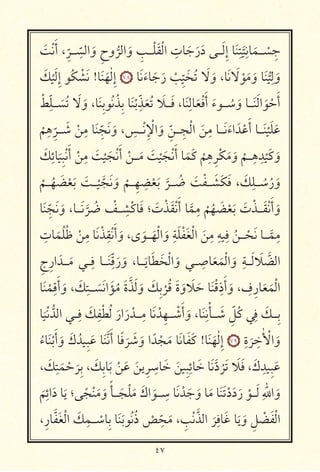 جِسْمَانِيَّتِنَا إِلَى دَرَجَاتِ الْقَلْبِ وَالرُّوحِ وَالسِّرِّ، أَنْتَ
وَلِيُّنَا وَمَوْلَانَا، وَلَا تُخَيِّبْ رَجَاءَنَا ۝ إِلٰهَنَا! نَشْكُو إِلَيْكَ
أَحْوَالَنَا وَسُوءَ أَفْعَالِنَا، فَلَا تُعَذِّبْنَا بِذُنُوبِنَا، وَلَا تُسَلِّطْ
عَلَيْنَا أَعْدَاءَنَا مِنَ الْجِنِّ وَالْإِنْسِ، وَنَجِّنَا مِنْ شَرِّهِمْ
وَكَيْدِهِمْ وَمَكْرِهِمْ كَمَا أَنْجَيْتَ مَنْ أَنْجَيْتَ مِنْ أَنْبِيَائِكَ
وَرُسُلِكَ، فَكَشَفْتَ ضُرَّ بَعْضِهِمْ وَنَجَّيْتَ بَعْضَهُمْ
وَأَنْقَذْتَ بَعْضَهُمْ مِمَّا أَنْقَذْتَ؛ فَاكْشِفْ ضُرَّنَا، وَنَجِّنَا
مِمَّا نَحْنُ فِيهِ مِنَ الْغَفْلَةِ وَالْهَوَى، وَأَنْقِذْنَا مِنْ ظُلُمَاتِ
الضَّلَالَةِ وَالْمَعَاصِي وَالْخَطَايَا، وَرَقِّنَا فِي مَدَارِجِ
الْمَعَارِفِ، وَأَذِقْنَا حَلَاوَةَ قُرْبِكَ وَلَذَّةَ مُؤَانَسَتِكَ، وَأَمِتْنَا
بِكَ فِي كُلِّ شَأْنِنَا، وَأَشْهِدْنَا مِنْ أَسْرَارِ لُطْفِكَ فِي الدُّنْيَا
وَالْآخِرَةِ ۝ إِلٰهَنَا! كَفَانَا مَجْدًا وَشَرَفًا أَنَّنَا عَبِيدُكَ وَأَبْنَاءُ
عَبِيدِكَ، فَلَا تَرُدَّنَا خَائِبِينَ خَاسِرِينَ عَنْ بَابِكَ، بِرَحْمَتِكَ،
وَاللهِ لَوْ رَدَدْتَنَا مَا وَجَدْنَا سِوَاكَ مَلْجَأً وَمَنْجًى؛ يَا دَائِمَ
الْفَضْلِ وَيَا غَافِرَ الذَّنْبِ، مَحِّصْ ذُنُوبَنَا بِاسْمِكَ الْغَفَّارِ،
٤٧